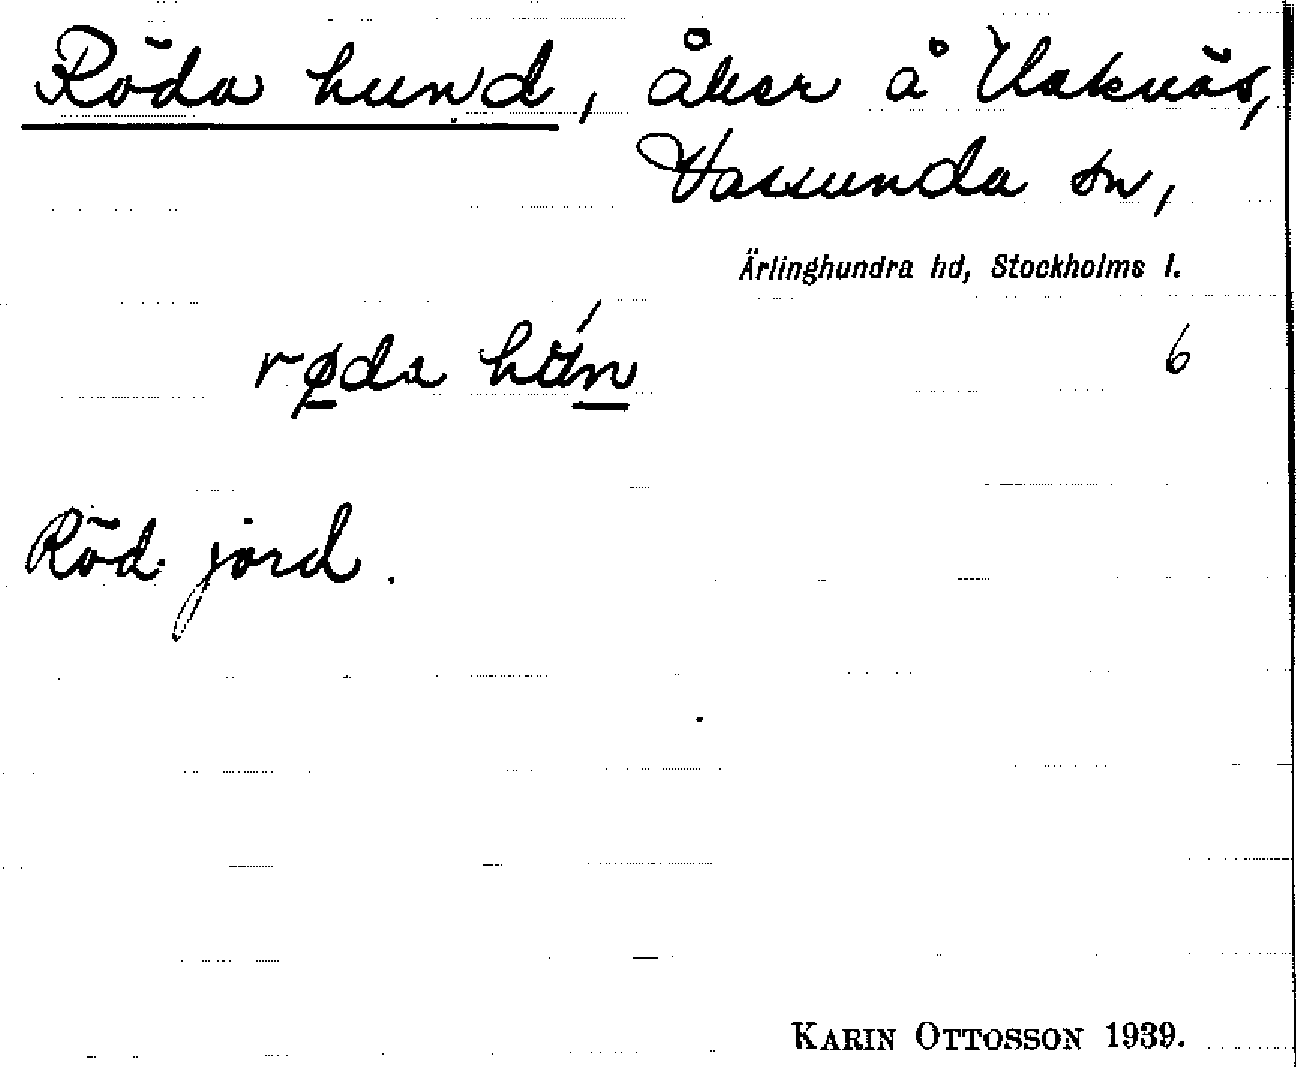 Röda hund, åker å Haknäs,
Vassunda sn,
Ärlinghundra hd, Stockholms l.
røda
6
Röd jord.
KARIN OTTOSSON 1939.